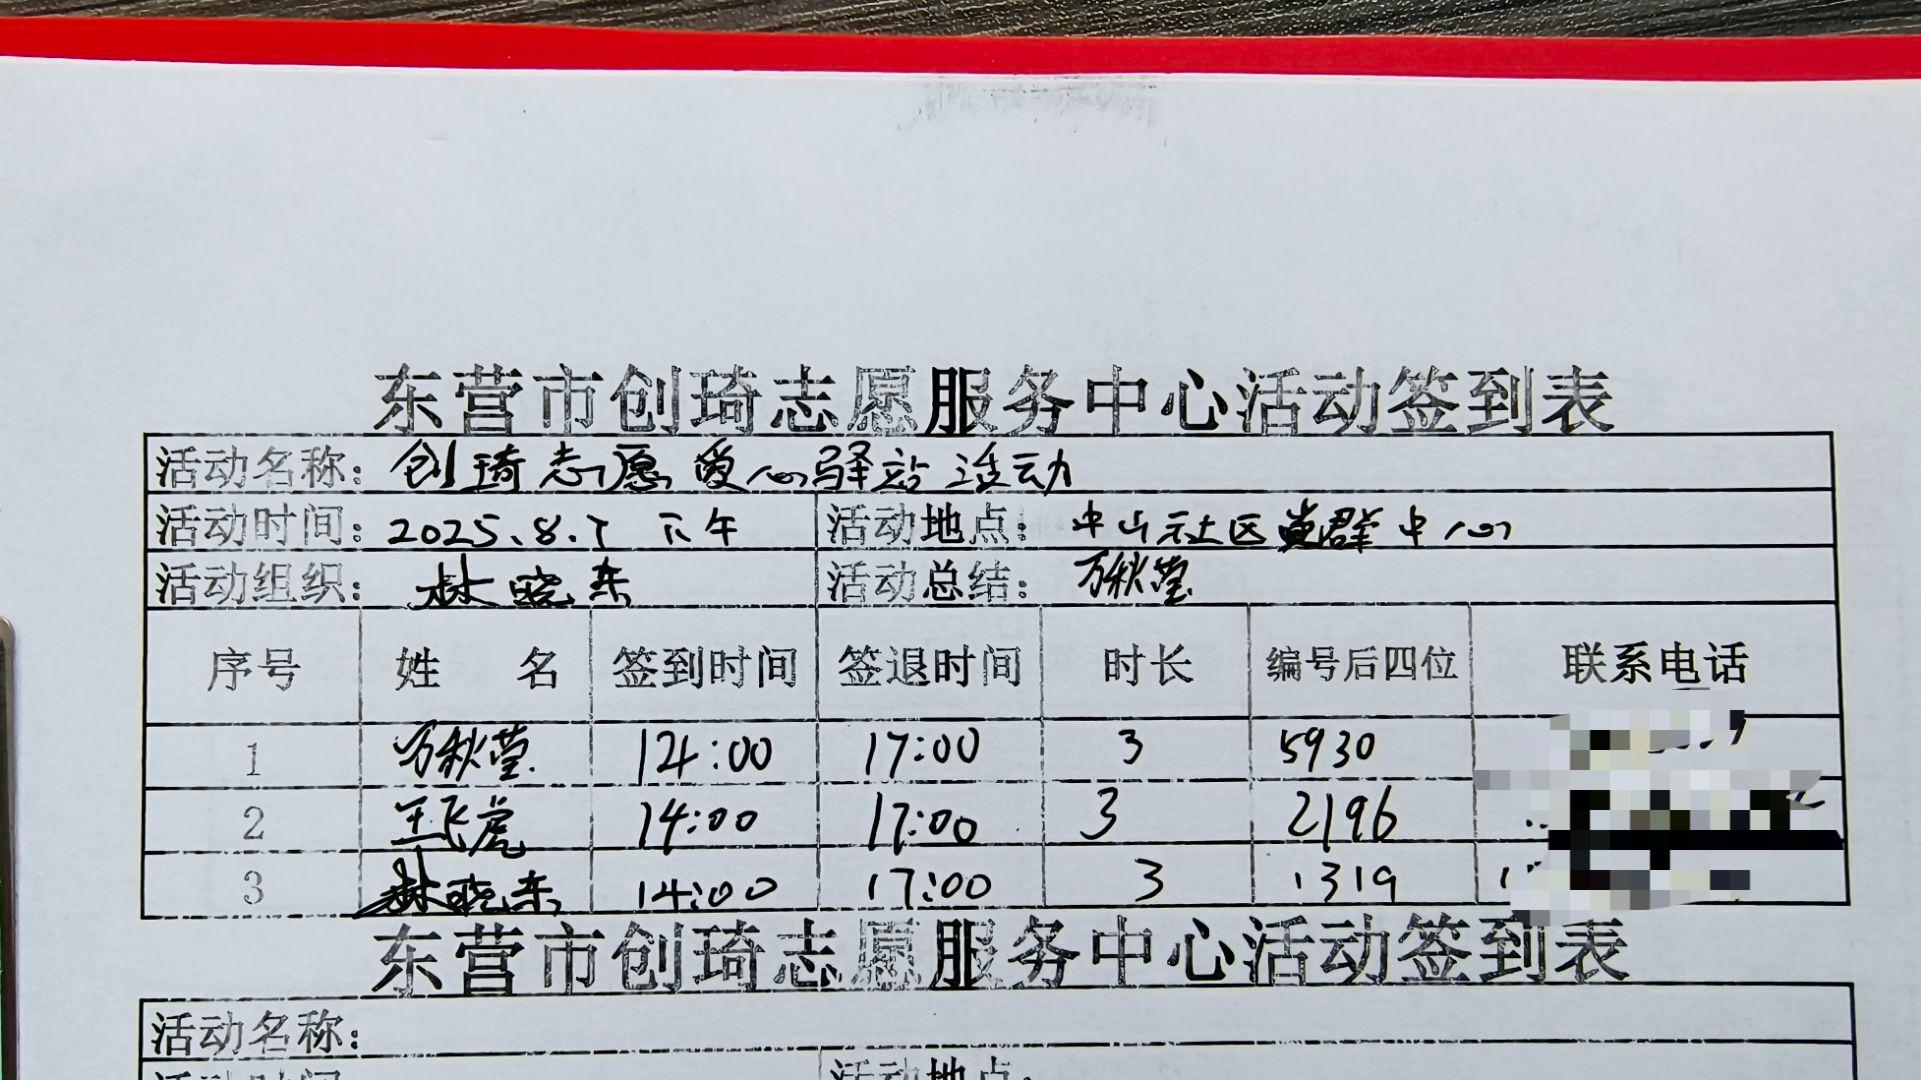 东营市创琦志愿服务中心活动签到表
活动名称：创琦志愿爱心驿站活动
活动时间：2025.8.7 下午 活动地点：中山社区党群中心
活动组织：林晓东 活动总结：万秋莹
序号 姓 名 签到时间 签退时间 时长 编号后四位 联系电话
1 万秋莹 14:00 17:00 3 5930
2 王飞虎 14:00 17:00 3 2196
3 林晓东 14:00 17:00 3 1319
东营市创琦志愿服务中心活动签到表
活动名称：
活动时间： 活动地点：